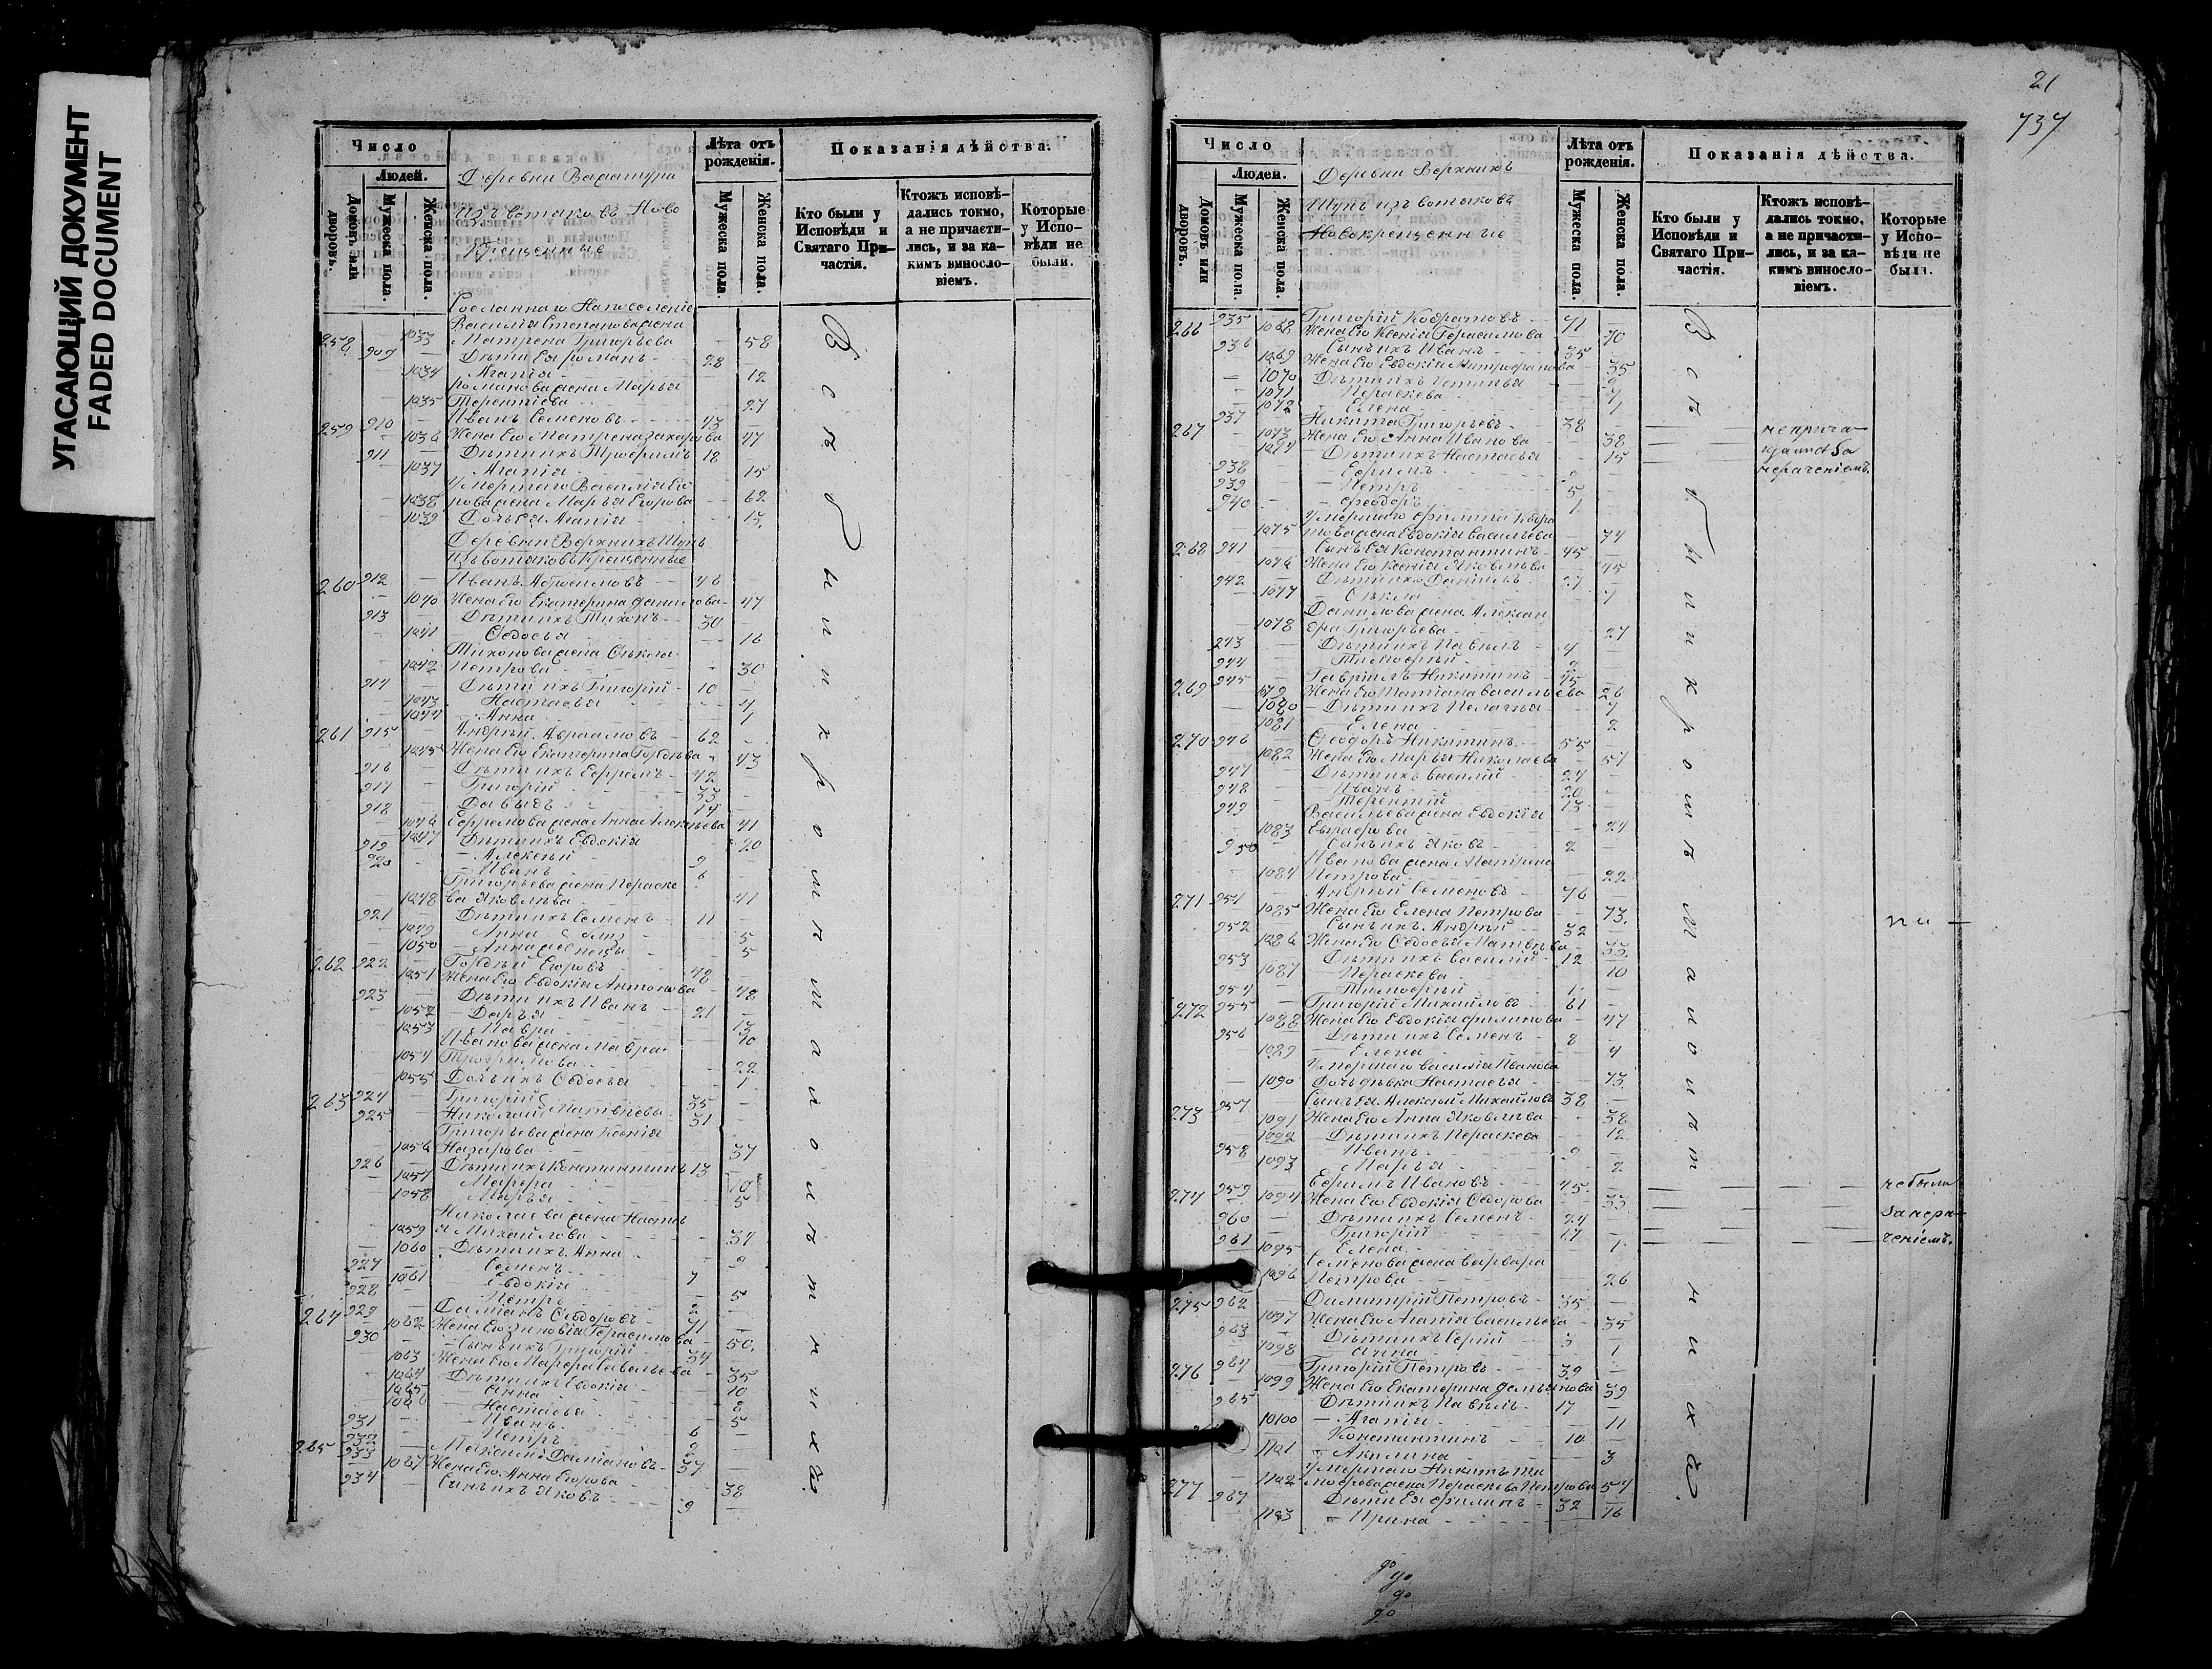 УГАСАЮЩИЙ ДОКУМЕНТ
FADED DOCUMENT
Число
Людей.
Домовъ или дворовъ.
Мужеска пола.
Женска пола.
Деревни
Изъ вотяковъ Ново
Крещенные
Лѣта отъ рожденія.
Мужеска пола.
Женска пола.
Показанія дѣйства.
Кто были у Исповѣди и Святаго Причастія.
Ктожъ исповѣдались токмо, а не причастились, и за какимъ винословіемъ.
Которые у Исповѣди не были.
Василія Степанова жена
258 1033 Матрена Григорьева 58
909 Дѣти Ея Романъ 28
1034 Агапія 12
Романова жена Марья
1035 Терентіева 27
259 910 Иванъ Семеновъ 43
1036 Жена Его Матрена Захарова 47
911 Дѣти ихъ Трофимъ 18
1037 Агапія 15
Умершаго Василія Его
1038 рова жена Марья Егорова 62
1039 Дочь Ея Агапія 15
Деревни Верхнихъ Шунъ
Изъ вотяковъ Крещенные
260 912 Иванъ Абросимовъ 46
1040 Жена Его Екатерина Данилова 47
913 Дѣти ихъ Тихонъ 30
1041 Ѳедосья 16
Тихонова жена Ѳекла
1042 Петрова 30
914 Дѣти ихъ Григорій 10
1043 Настасья 4
1044 Анна 1
261 915 Андрей Абрасимовъ 62
1045 Жена Его Екатерина Гордѣева 43
916 Дѣти ихъ Ефремъ 42
917 Григорій 33
918 Давыдъ 14
1046 Ефремова жена Анна Алексѣева 41
1047 Дѣти ихъ Евдокія 20
919 Алексѣй 9
920 Иванъ 6
Григорьева жена Параске
1048 ва Яковлѣва 41
921 Дѣти ихъ Семенъ 11
1049 Анна 5
1050 Анна 5
262 922 Гордѣй Егоровъ 48
1051 Жена Его Евдокія Антонова 48
923 Дѣти ихъ Иванъ 21
1052 Дарья 13
1053 Мавра 10
Иванова жена Мавра
1054 Трофимова 22
1055 Дочь ихъ Ѳедосья 1
263 924 Григорій 35
925 Николай Матвѣевы 31
Григорьева жена Ксенія
1056 Назарова 37
926 Дѣти ихъ Константинъ 13
1057 Марфа 10
1058 Марья 5
Николаева жена Настась
1059 я Михайлова 34
1060 Дѣти ихъ Анна 9
927 Семенъ 7
1061 Евдокія 5
928 Петръ 2
264 929 Даміанъ Ѳедоровъ 71
1062 Жена Его Зиновія Герасимова 50
930 Сынъ ихъ Григорій 34
1063 Жена Его Марфа Савельева 35
1064 Дѣти ихъ Евдокія 10
1065 Анна 8
1066 Настасья 5
931 Иванъ 6
932 Петръ 2
265 933 Максимъ Даміановъ 37
1067 Жена Его Анна Егорова 38
934 Сынъ ихъ Яковъ 9
Всѣ были кромѣ малолѣтнихъ.
21
737
Число
Людей.
Домовъ или дворовъ.
Мужеска пола.
Женска пола.
Деревни Верхнихъ
Шунъ изъ вотяковъ
Новокрещенные
Лѣта отъ рожденія.
Мужеска пола.
Женска пола.
Показанія дѣйства.
Кто были у Исповѣди и Святаго Причастія.
Ктожъ исповѣдались токмо, а не причастились, и за какимъ винословіемъ.
Которые у Исповѣди не были.
266 935 Григорій Кодратовъ 71
1068 Жена Его Ксенія Герасимова 70
936 Сынъ ихъ Иванъ 35
1069 Жена Его Евдокія Митрофанова 35
1070 Дѣти ихъ Устинья 9
1071 Параскева 4
1072 Елена 1
267 937 Никита Григорьевъ 38
1073 Жена Его Анна Иванова 38
1074 Дѣти ихъ Настасья 15
938 Ефимъ 9
939 Петръ 5
940 Ѳеодоръ 1
за нераченіемъ.
Умершаго Филипа Кодра
1075 това жена Евдокія Васильева 74
268 941 Сынъ Ея Константинъ 45
1076 Жена Его Ксенія Яковлѣва 45
942 Дѣти ихъ Данилъ 27
1077 Ѳекла 7
Данилова жена Алексан
1078 дра Григорьева 27
943 Дѣти ихъ Павелъ 4
944 Тимофѣй 2
269 945 Гаврілъ Никитинъ 45
1079 Жена Его Татіана Васильева 26
1080 Дѣти ихъ Пелагѣя 7
1081 Елена 2
270 946 Ѳеодоръ Никитинъ 55
1082 Жена Его Марья Николаева 51
947 Дѣти ихъ Василій 24
948 Иванъ 20
949 Терентій 13
Васильева жена Евдокія
1083 Евграфова 24
950 Сынъ ихъ Яковъ 2
Иванова жена Матрена
1084 Петрова 22
271 951 Андрей Семеновъ 76
1085 Жена Его Елена Петрова 73
952 Сынъ ихъ Андрей 32
1086 Жена Его Ѳедосья Матвѣева 33
953 Дѣти ихъ Василій 12
1087 Параскева 10
954 Тимофѣй 1
272 955 Григорій Михайловъ 61
1088 Жена Его Евдокія Филипова 47
956 Дѣти ихъ Семенъ 8
1089 Елена 4
Умершаго Василія Иванова
1090 Дочь дѣвка Настасья 73
273 957 Сынъ Ея Алексѣй Михайловъ 38
1091 Жена Его Анна Яковлѣва 38
1092 Дѣти ихъ Параскева 12
958 Иванъ 9
1093 Марья 2
274 959 Ефимъ Ивановъ 45
1094 Жена Его Евдокія Ѳедорова 33
960 Дѣти ихъ Семенъ 24
961 Григорій 17
1095 Елена 1
Семенова жена Варвара
1096 Петрова 26
небыли
за нера
ченіемъ.
275 962 Димитрій Петровъ 35
1097 Жена Его Агапія Васильева 35
963 Дѣти ихъ Сергій 3
1098 Анна 1
276 964 Григорій Петровъ 39
1099 Жена Его Екатерина Демьянова 39
965 Дѣти ихъ Павелъ 17
10100 Агапія 11
Константинъ 10
1101 Акилина 3
Умершаго Никиты Ти
277 1102 мофеева жена Параскева Петрова 54
967 Дѣти Ея Филипъ 32
1103 Ирина 16
Всѣ были кромѣ малолѣтнихъ.